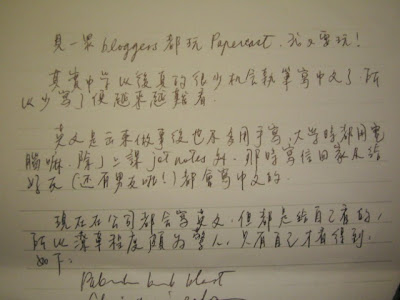 見一眾 bloggers 都玩 Papercast, 我又要玩!
其實中學以後真的很少机会執筆寫中文了, 所
以少寫了便越來越難看.
英文是出來做事後也不多用手寫, 大学時都用電
腦嘛, 除了上課 jot notes 外. 那時寫信回家及給
好友 (還有男友啦!) 都會寫中文的.
現在在公司都會寫英文, 但都是給自己看的,
所以潦草程度頗為驚人, 只有自己才看得到,
如下: